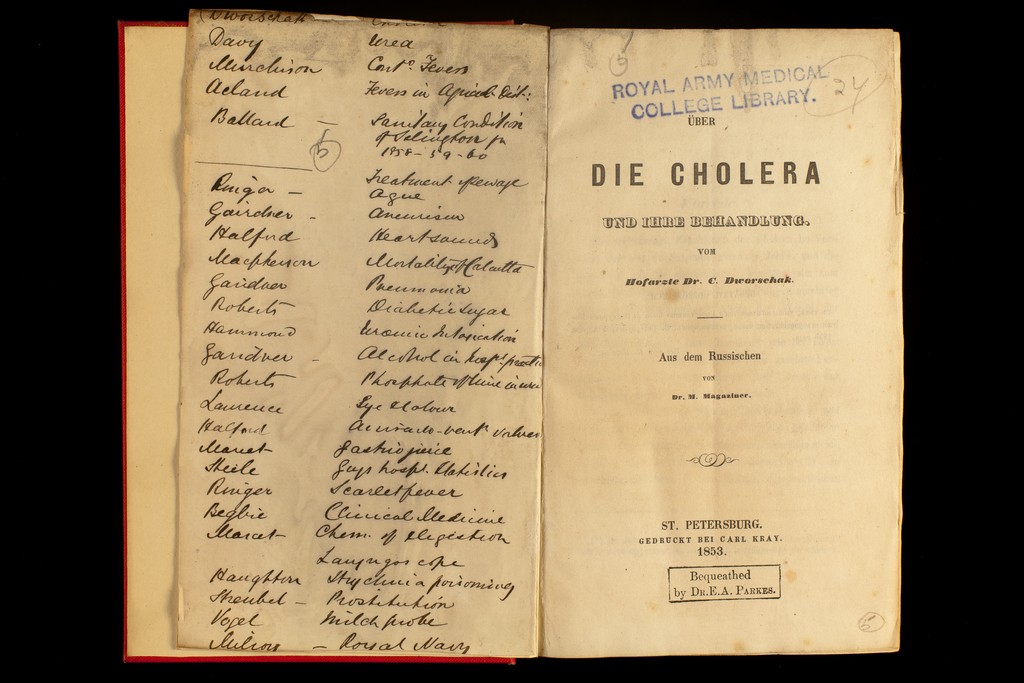 Dworschak Cholera
Davy Urea
Murchison Cont.d Fevers
Acland Fevers in Agricult Dist:
Ballard — Sanitary Condition
of Islington for
1858-59-60
5
Ringer — Treatment
Ague
Gairdner - Aneurism
Halford Heart sounds
Macpherson Mortality of Calcutta
Gairdner Pneumonia
Roberts Diabetic Sugar
Hammond Uraemic Intoxication
Gairdner - Alcohol in hospl practice
Roberts Phosphate of lime in urine
Laurence Eye Colour
Halford
Marcet Gastric juice
Steele Guys hospl. Statistics
Ringer Scarlet fever
Begbie Clinical Medicine
Marcet Chem. of digestion
Laryngoscope
Haughton Strychnia poisoning
Strenbel — Prostitution
Vogel Milch probe
Milroy — Royal Navy
5
24
ROYAL ARMY MEDICAL
COLLEGE LIBRARY.
ÜBER
DIE CHOLERA
UND IHRE BEHANDLUNG.
VOM
Hofarzte Dr. C. Dworschak.
Aus dem Russischen
VON
Dr. M. Magaziner.
ST. PETERSBURG.
GEDRUCKT BEI CARL KRAY.
1853.
Bequeathed
by DR. E. A. PARKES.
5